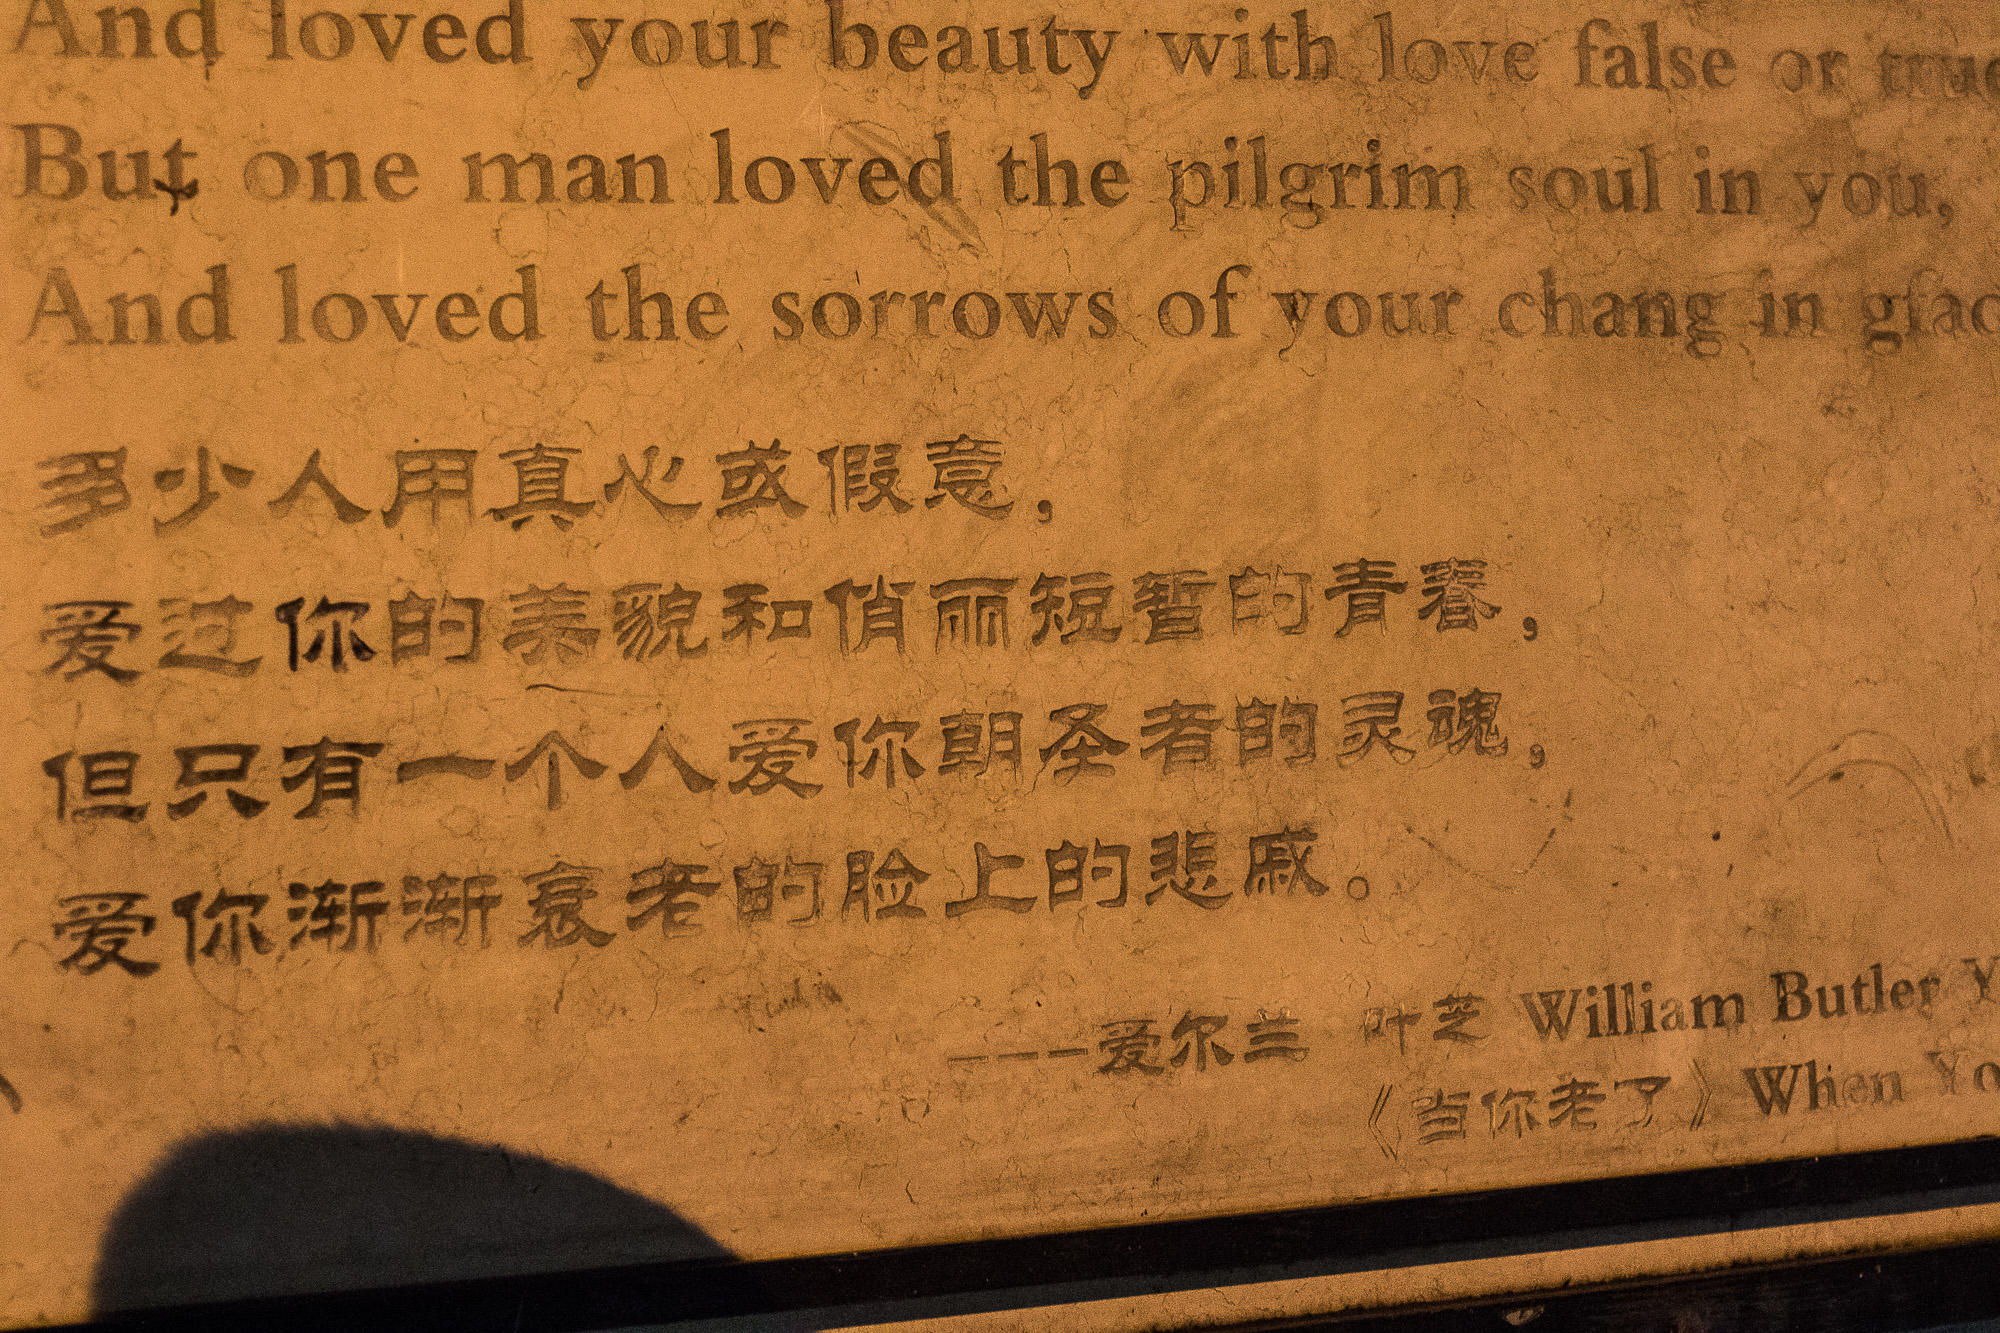 And loved your beauty with love false or true
But one man loved the pilgrim soul in you,
And loved the sorrows of your chang in
多少人用真心或假意，
爱过你的美貌和俏丽短暂的青春，
但只有一个人爱你朝圣者的灵魂，
爱你渐渐衰老的脸上的悲戚。
---爱尔兰 叶芝 William Butler Y
《当你老了》When Yo